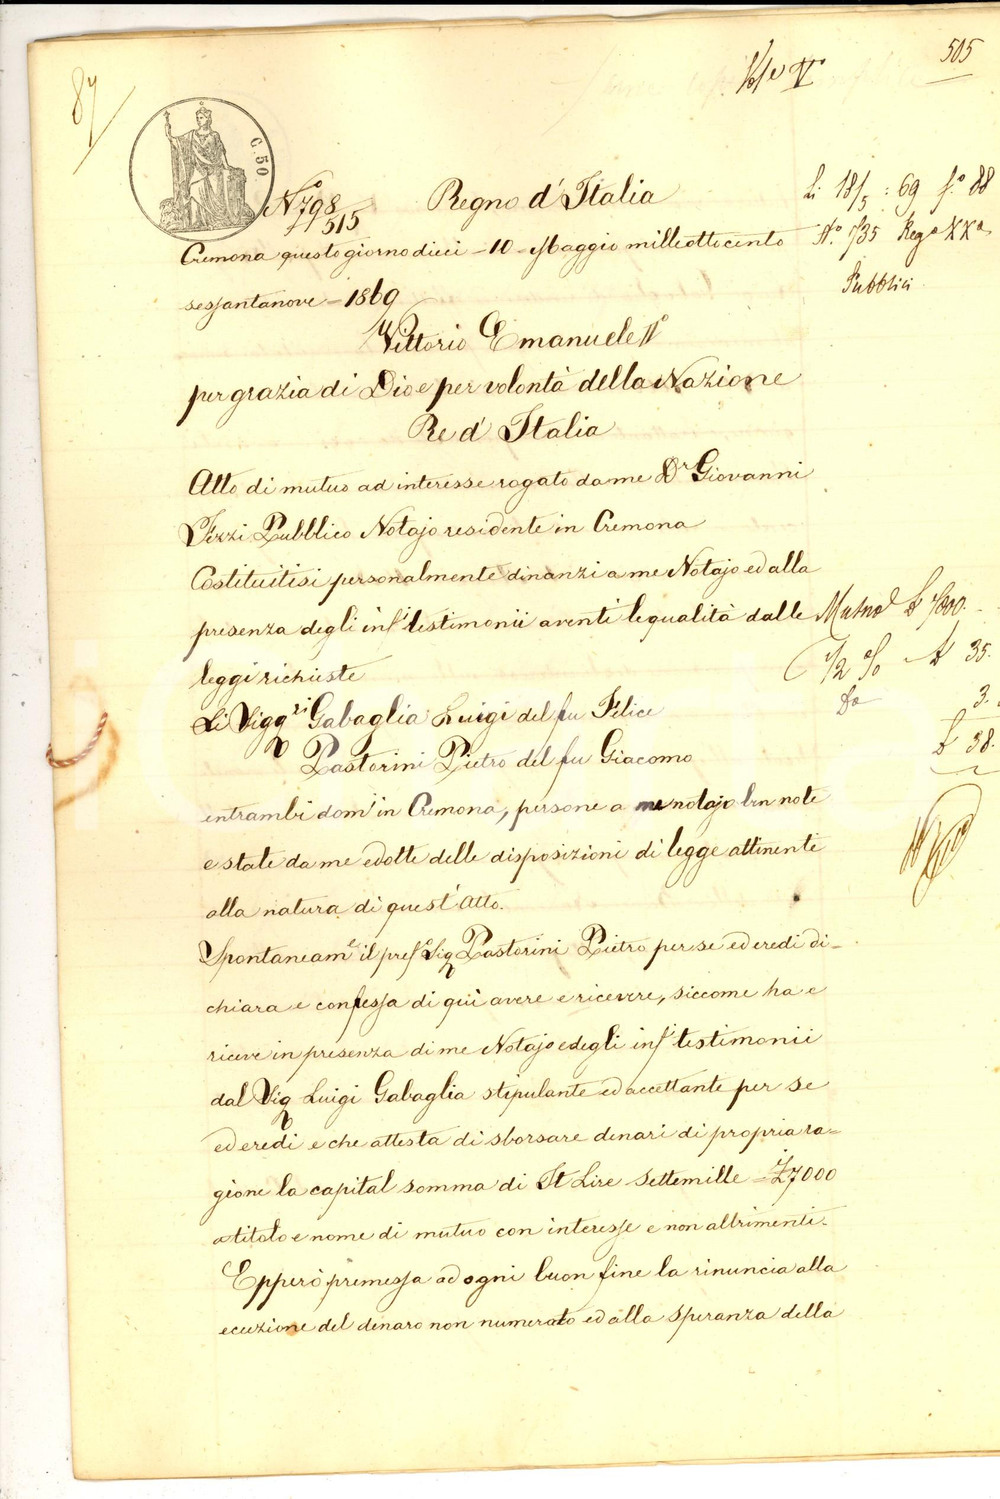 505
87
C. 50
N.° 798
515
Regno d'Italia
Cremona questo giorno dieci - 10 - Maggio mille ottocento
sessantanove - 1869
Li 18/5 : 69 f.° 88
N.° 735 Reg.° XX°
Pubblici
Vittorio Emanuele II°
per grazia di Dio e per volontà della Nazione
Re d'Italia
Atto di mutuo ad interesse rogato da me Dr Giovanni
Pubblico Notajo residente in Cremona
Costituitisi personalmente dinanzi a me Notajo ed alla
presenza degli inf.i testimonii aventi le qualità dalle
leggi richieste
Mutuo £ 7000. -
1/2 % £ 35.
3.
£ 38.
Li Sigg.ri Gabaglia Luigi del fu Felice
Pastorini Pietro del fu Giacomo
entrambi dom.i in Cremona, persone a me notajo ben note
e state da me edotte delle disposizioni di legge attinenti
alla natura di quest'Atto.
Spontaneam.e il pref.° Sig Pastorini Pietro per se ed eredi di-
chiara e confessa di quì avere e ricevere, siccome ha e
riceve in presenza di me Notajo e degli inf.i testimonii
dal Sig Luigi Gabaglia stipulante ed accettante per se
ed eredi e che attesta di sborsare denari di propria ra-
gione la capital somma di It Lire settemille - £ 7000
a titolo e nome di mutuo con interesse e non altrimenti.
Epperò premessa ad ogni buon fine la rinuncia alla
eccezione del denaro non numerato ed alla speranza della